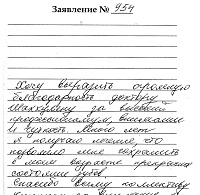 Заявление № 954
Хочу выразить огромную
благодарность доктору
за высокий
профессионализм, внимание
и чуткость. Много лет
я получаю лечение, что
позволило мне сохранить
в моем возрасте прекрасное
состояние зубов.
Спасибо всему коллективу